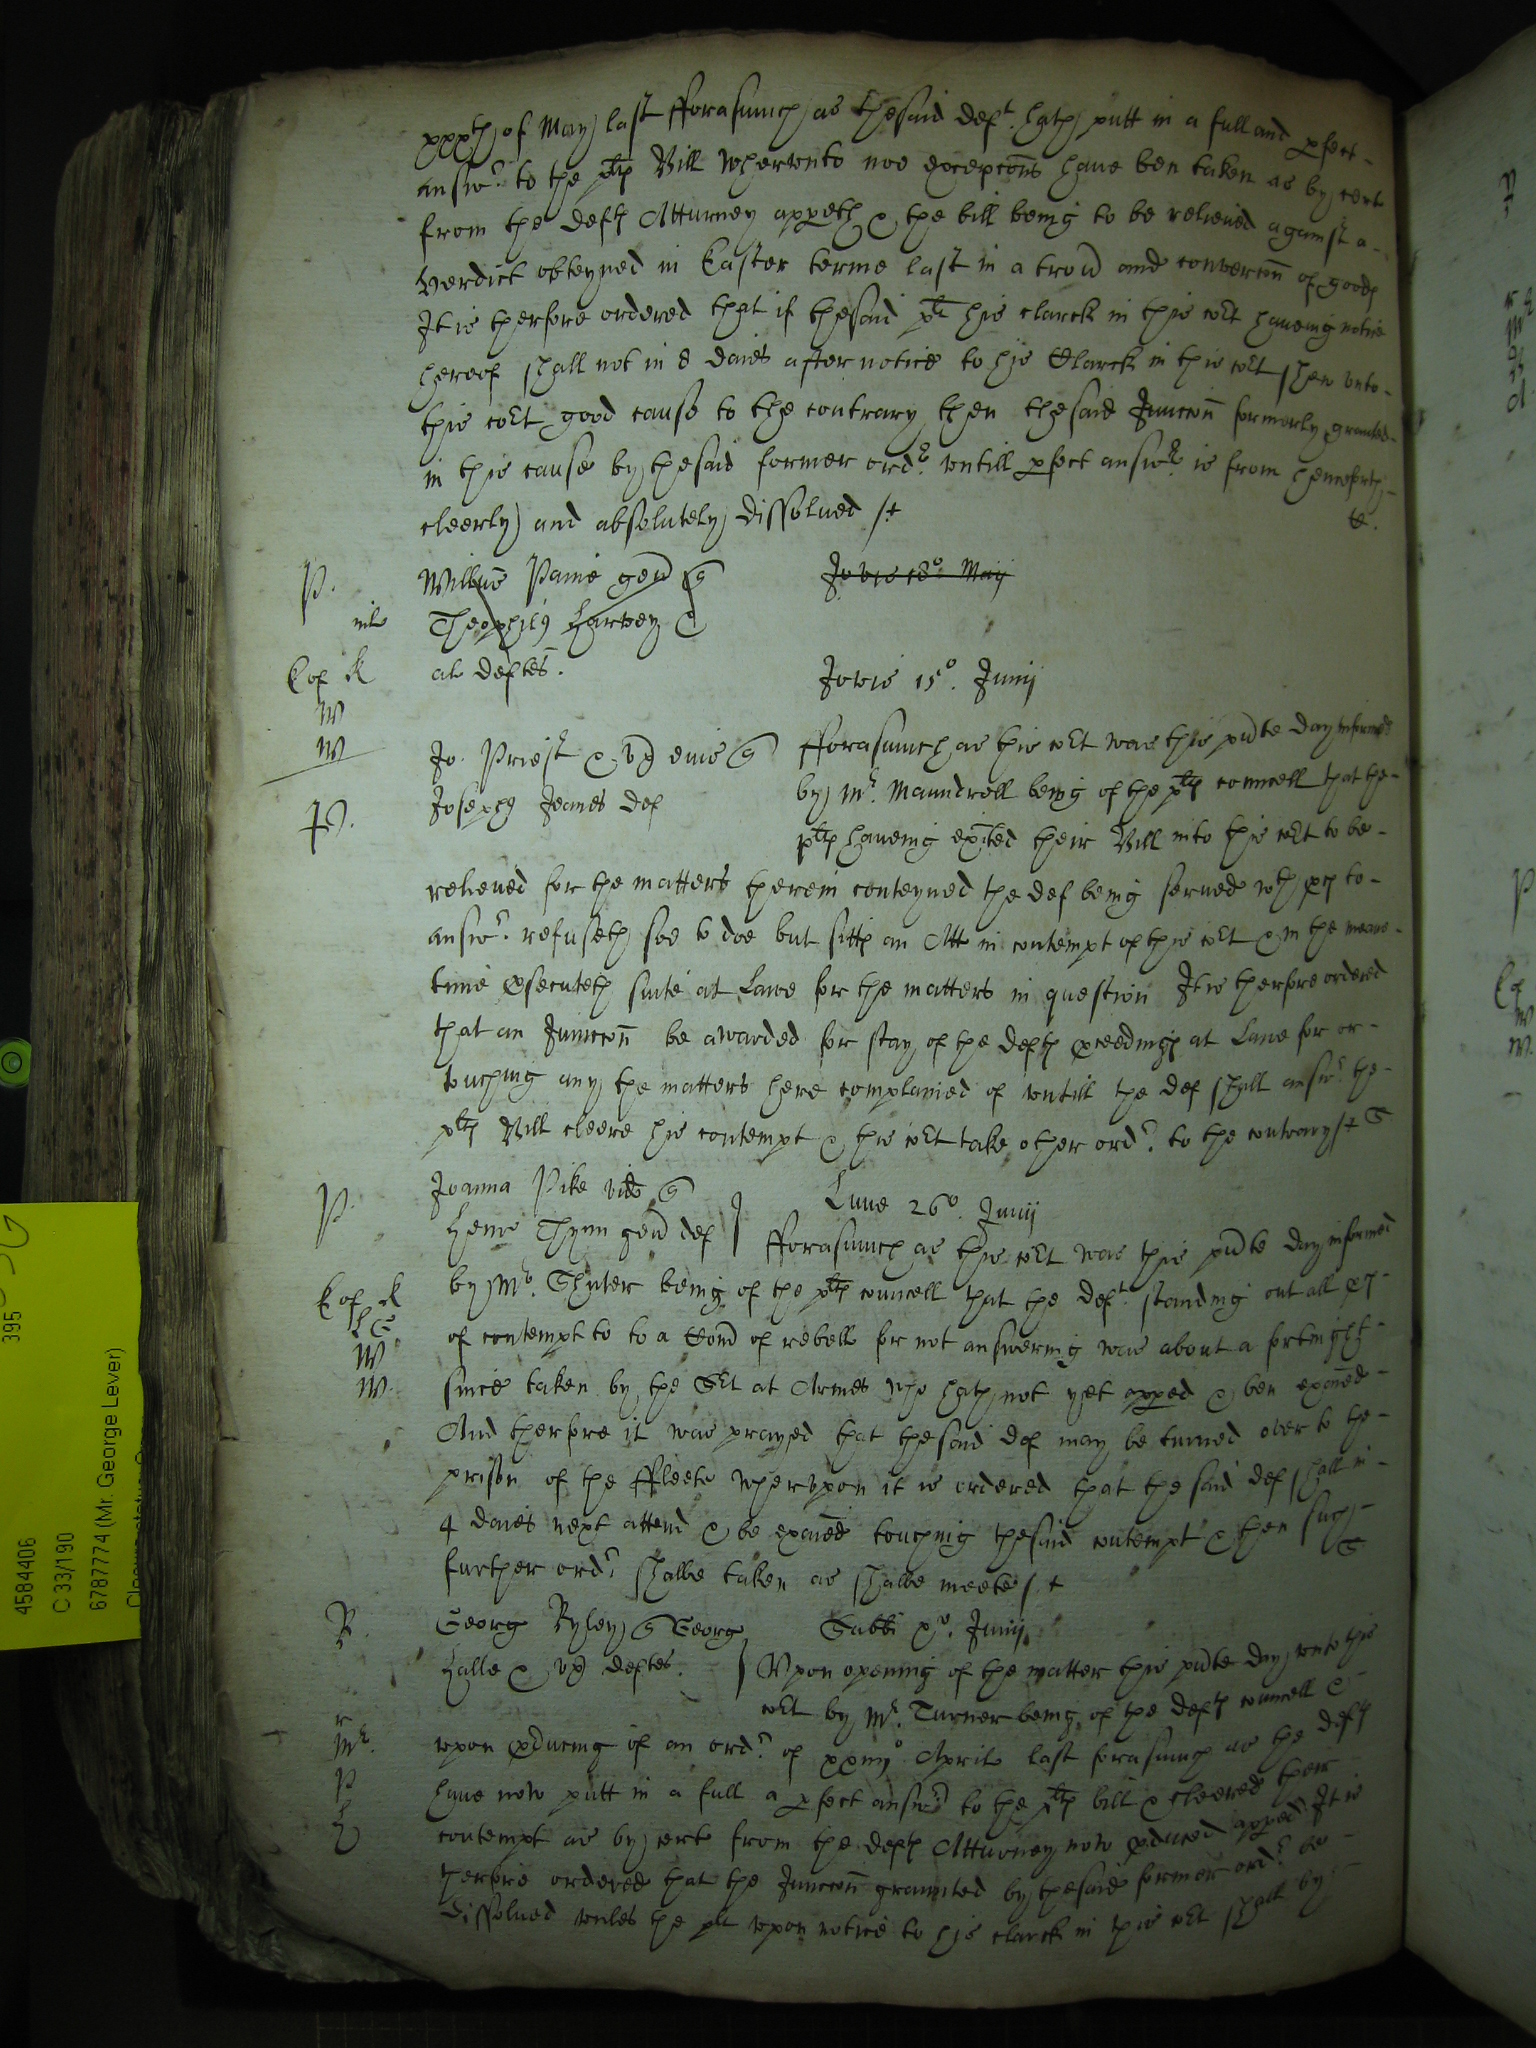 xxxth of May last fforasmuch as thesaid deft. hath putt in a full and pfect
answr. to the plts Bill wherunto noe excepcons have ben taken as by cert
from the defts Atturney appeth & the bill being to be relieved against a
verdict obteyned in Easter terme last in a trov and convercon of goods
It is therfore ordered that if thesaid plt his clarck in this cort haveing notice
hereof shall not in 8 daies after notice to his Clarck in this cort shew unto
this cort good cause to the contrary then thesaid Iniuccon formerly graunted
in this cause by thesaid former ordr. untill pfect answr is from henceforth
cleerly and absolutely dissolved
P.
Willus Paine gen
Theophilus Harvey &
al deftes.
Jovis 18o May
Jovis 15o. Junij
Eof R
W
W
P.
Jo. Priest & ux eius
Joseph Jeanes def
fforasmuch as this cort was this pnte day informed
by Mr. Maundrell being of the plts councell that the
plts haveing exited their Bill into this cort to be
relieved for the matters therein conteyned the def being served wth pcs to
answr. refuseth soe to doe but sitts an Att in contempt of this cort & in the meane
time psecuteth suite at Lawe for the matters in question It is therfore ordered
that an Iniuccon be awarded for stay of the defts pceedings at Lawe for or
touching any the matters here complained of untill the def shall answr. the
plts Bill cleere his contempt & this cort take other ordr. to the contrary
P.
Joanna Pike vid
Henr Thynn gen def
Lune 26o. Junij
fforasmuch as this cort was this pnte day informed
by Mr. Shuter being of the plts councell that the deft. standing out all pcs
Eof R
of contempt to to a Com of rebell for not answering was about a fortnight
W
since taken by the Srt at Armes who hath not yet apped & ben exaied
W.
And therfore it was prayed that thesaid def may be turned over to the
prison of the ffleete wherupon it is ordered that the said def shall in
4 daies next attend & be exaied touching thesaid contempt & then such
further ordr. shalbe taken as shalbe meete
R.
Georg Ryley Georg
Halle & ux deftes.
Sabbi xo. Junij
Upon opening of the matter this pnte day unto this
cort by Mr. Turner being of the defts councell &
Mr.
upon pducing of an ordr. of xxiiijo Aprill last forasmuch as the defts
P
have now putt in a full a pfect answr to the plts bill & cleered their
H
contempt as by cert from the defts Atturney now pduced apped It is
therfore ordered that the Iniuccon graunted by thesaid former ordr. be
dissolved unles the plt upon notice to his clarck in this cort shall by
395
4584406
C 33/190
6787774 (Mr. George Lever)